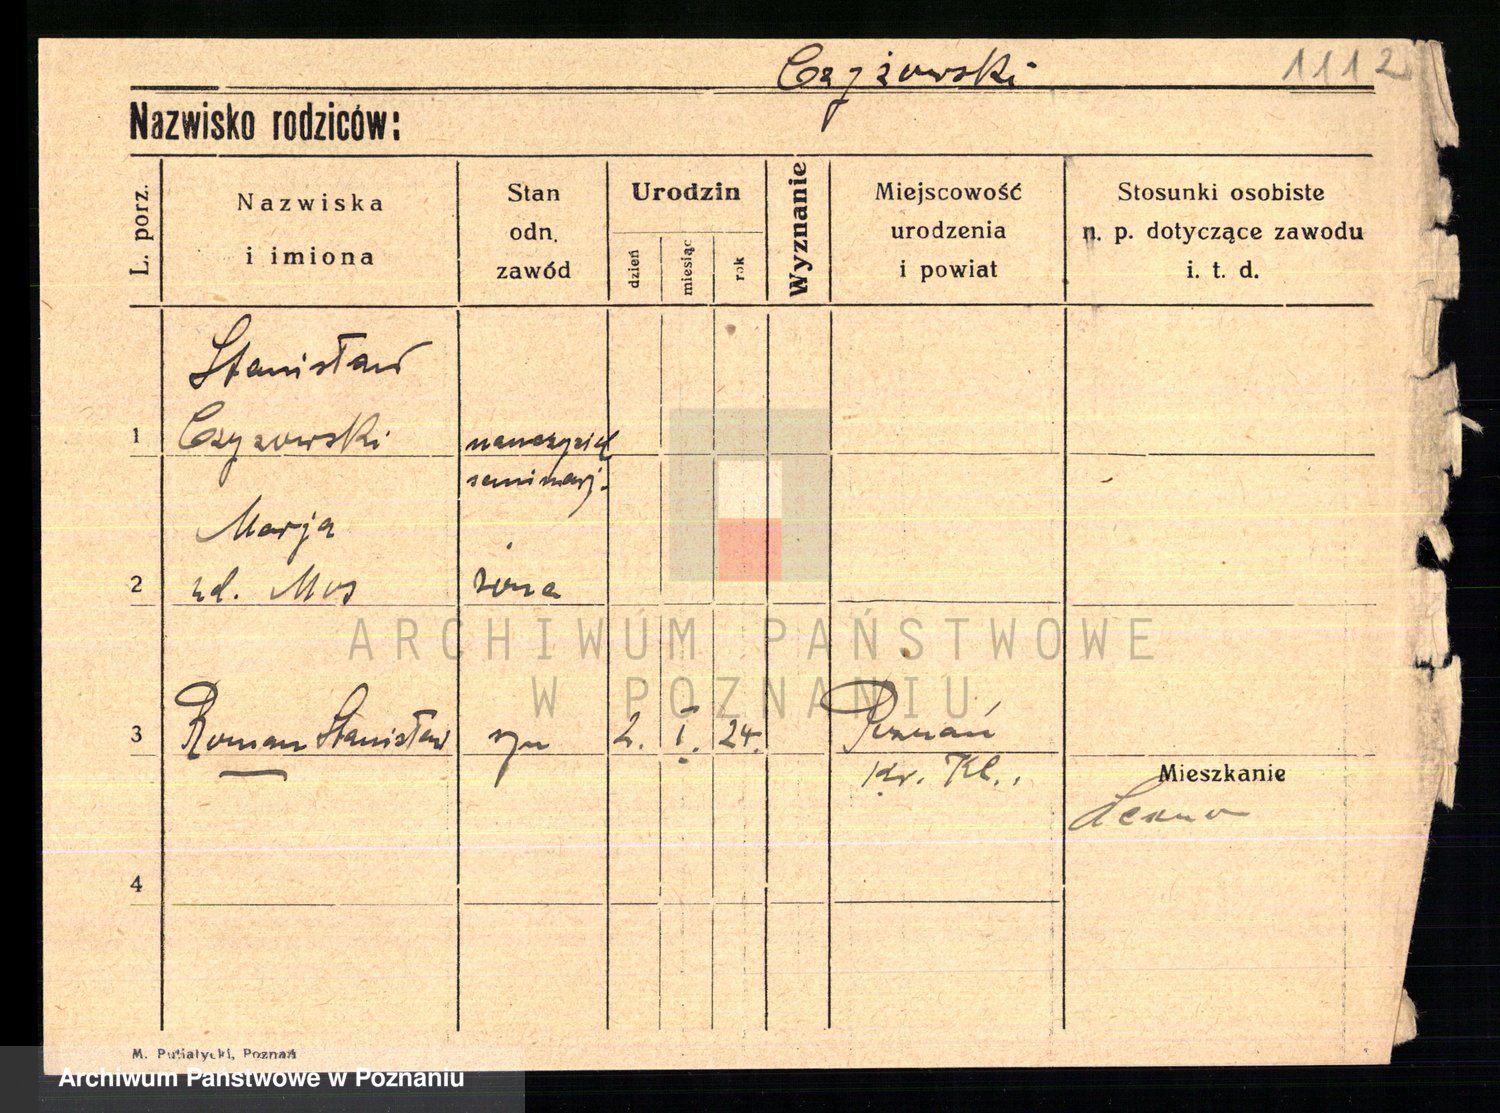 Czyżowski 1112
Nazwisko rodziców:
L. porz.
Nazwiska
i imiona
Stan
odn.
zawód
Urodzin
dzień
miesiąc
rok
Wyznanie
Miejscowość
urodzenia
i powiat
Stosunki osobiste
n. p. dotyczące zawodu
i. t. d.
Stanisław
1 Czyzowski nauczyciel
seminarj.
Marja
2 zd. Mos żona
ARCHIWUM PAŃSTWOWE
W POZNANIU
3 Roman Stanisław syn 2. I. 24. Poznań
Mieszkanie
4
M. Putiatycki, Poznań
Archiwum Państwowe w Poznaniu